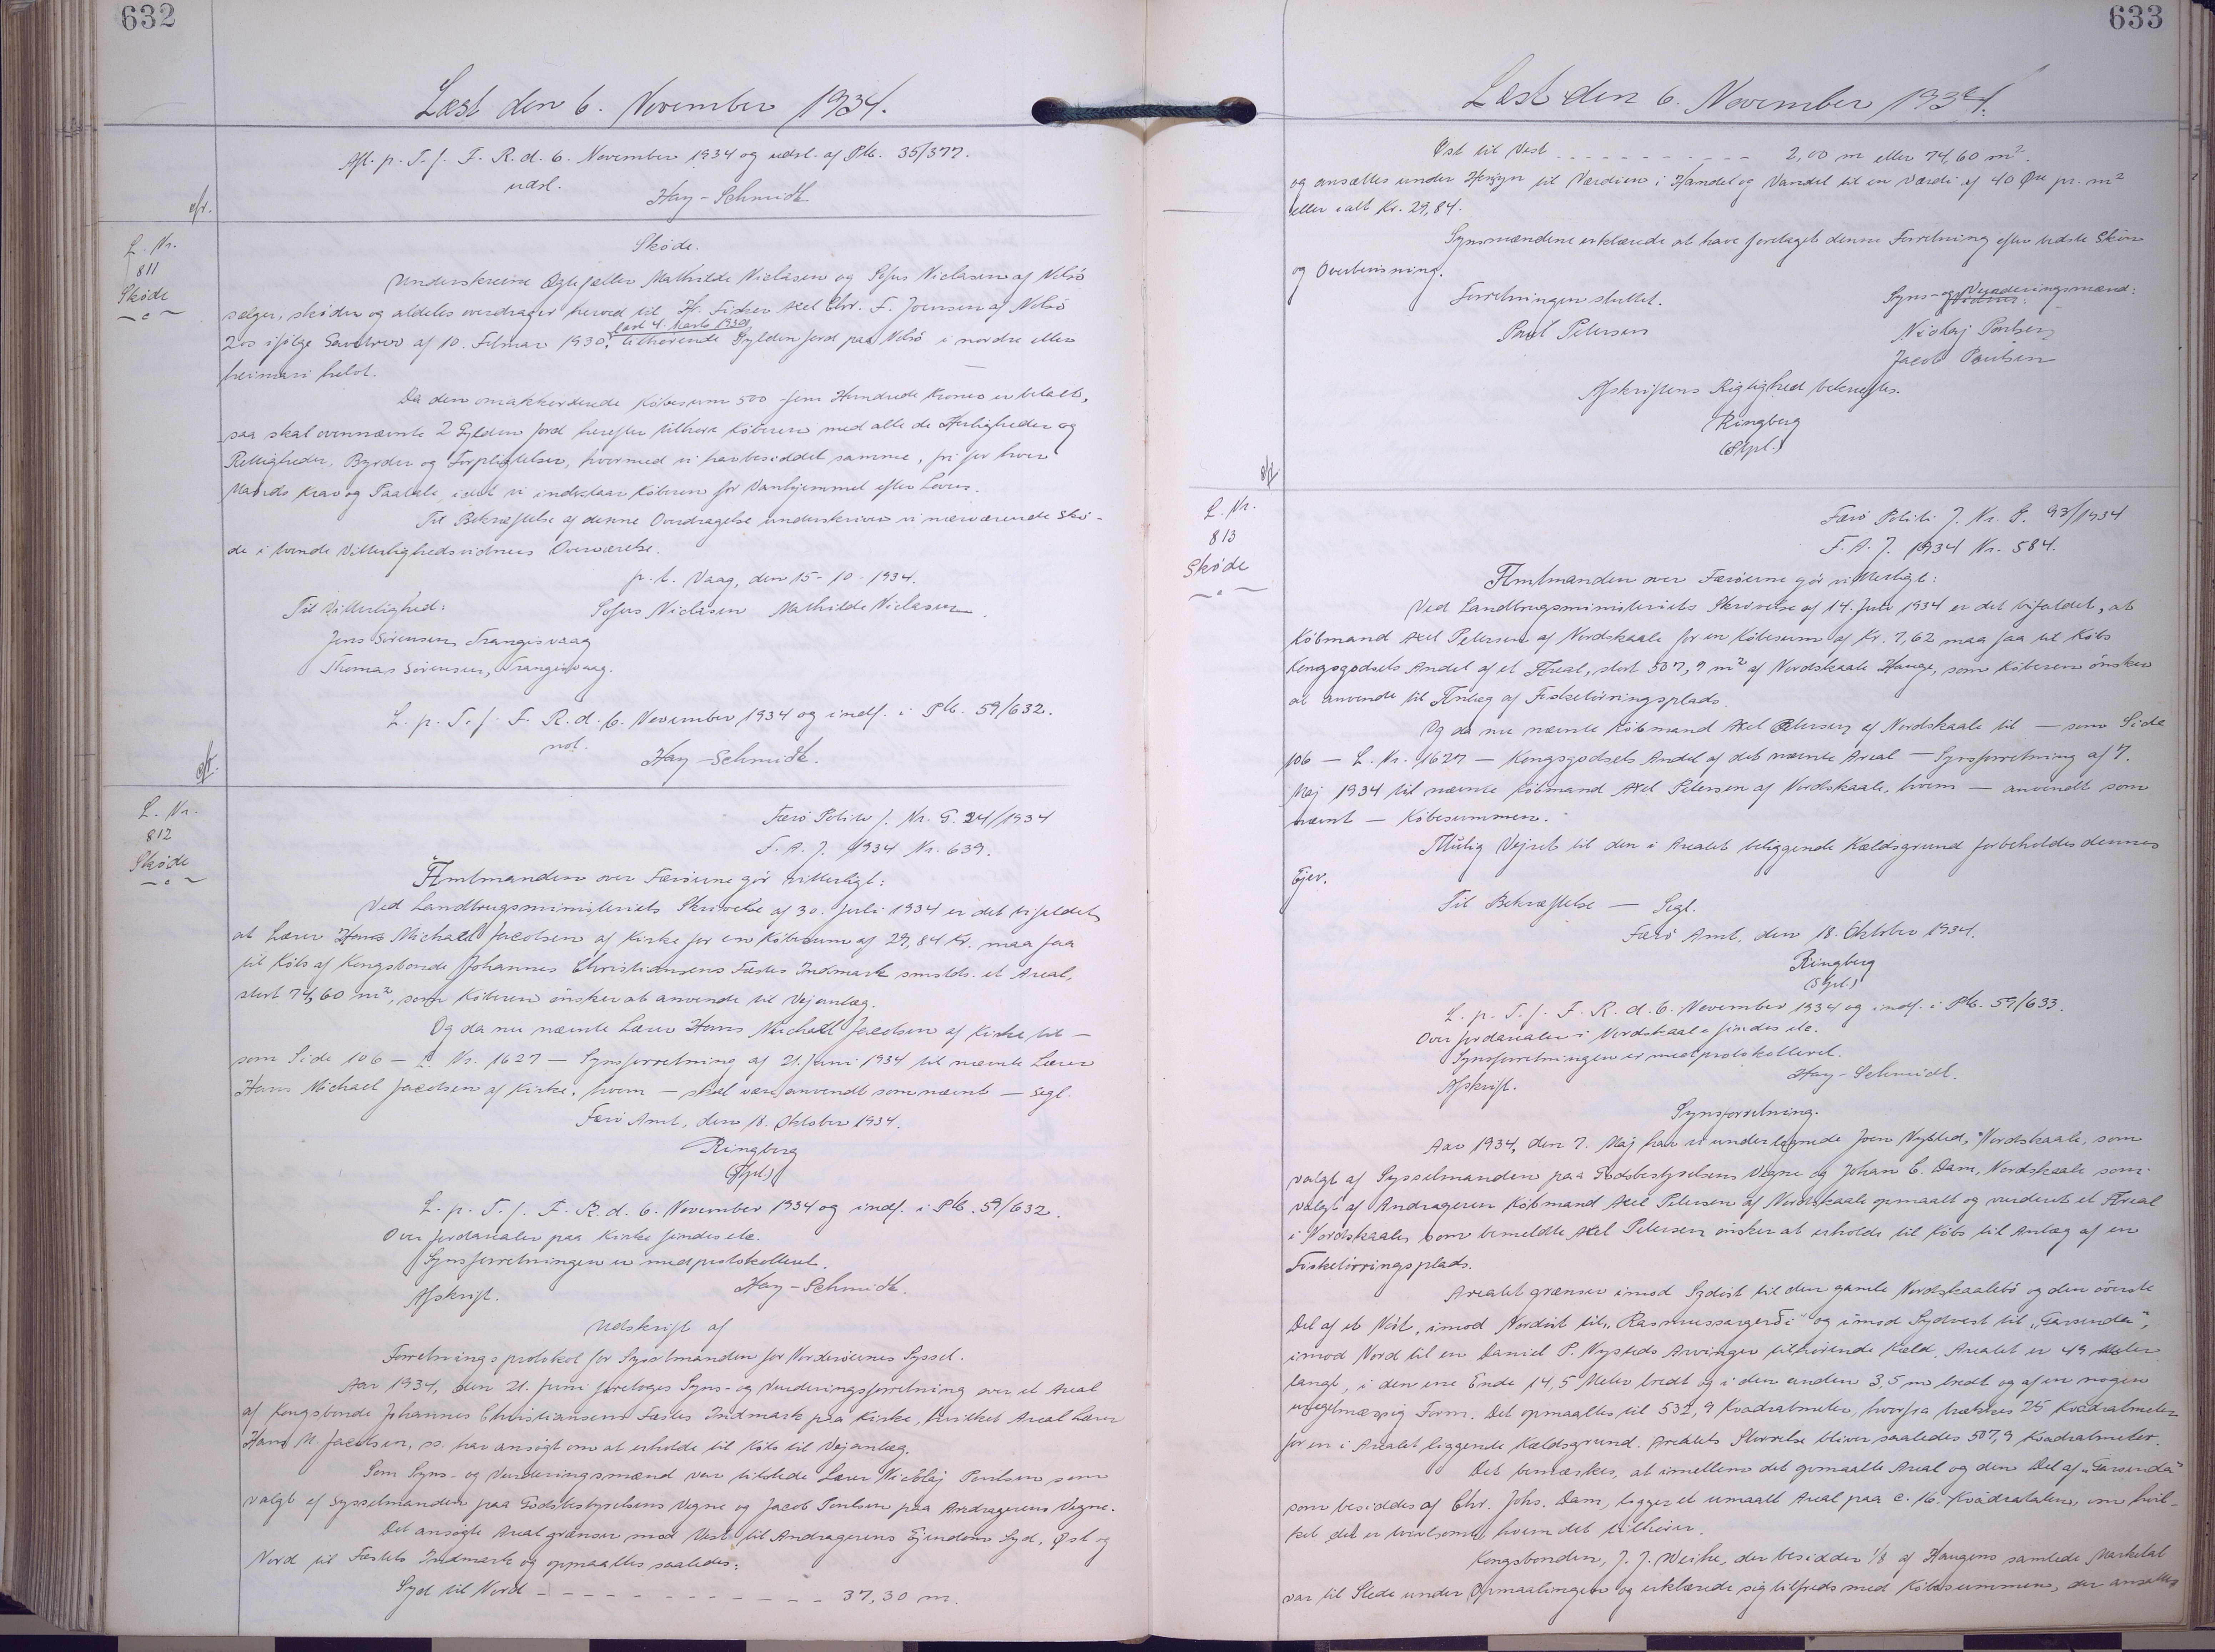 632
Læst den 6. November 1934.
Afl. p. T. f. F. R. d. 6. November 1934 og udsl. af Ptb. 35/377.
udsl.
Hay-Schmidt
L. Nr.
811
Skøde
Skøde.
Underskrevne Ægtefæller Mathilde Niclasen og Sofus Niclasen af Nolsö
sælger, skøder og aldeles overdrager herved til Hr. Fisker Axel Chr. F. Joensen af Nolsö
læst 4. Marts 1930
2 os ifølge Gavebrev af 10. Februar 1930, tilhørende Gylden Jord paa Nolsö i nordre eller
heimari helvt.
Da den omakkorderede Købesum 500 fem Hundrede Kroner er betalt,
saa skal ovennævnte 2 Gylden Jord herefter tilhøre Køberen med alle de Herligheder og
Rettigheder, Byrder og Forpligtelser, hvormed vi har besiddet samme, fri for hver
Mands Krav og Paatale, idet vi indestaar Køberen for Vanhjemmel efter Loven.
Til Bekræftelse af denne Overdragelse underskriver vi nærværende Skø-
de i tvende Vitterlighedsvidners Overværelse.
p. t. Vaag, den 15-10-1934.
Til Vitterlighed: Sofus Niclasen Mathilde Niclasen.
Jens Sörensen, Trangisvaag
Thomas Sörensen, Trangisvaag.
L. p. T. f. F. R. d. 6. November 1934 og indf. i Ptb. 59/632.
not.
Hay-Schmidt.
L. Nr.
812
Skøde
Færö Politi J. Nr. G. 24/1934
F. A. J. 1934 Nr. 639.
Amtmanden over Færöerne gör vitterligt:
Ved Landbrugsministeriets Skrivelse af 30. Juli 1934 er det bifaldet,
at Lærer Hans Michael Jacobsen af Kirke for en Købesum af 29,84 Kr. maa faa
til Købs af Kongsbonde Johannes Christiansens Fæstes Indmark smstds. et Areal,
stort 74,60 m², som Køberen ønsker at anvende til Vejanlæg.
Og da nu nævnte Lærer Hans Michael Jacobsen af Kirke til —
som Side 106 — L. Nr. 1627 — Synsforretning af 21. Juni 1934 til nævnte Lærer
Hans Michael Jacobsen af Kirke, hvem — skal være anvendt som nævnt — Segl.
Færö Amt, den 18. Oktober 1934.
Ringberg
(Stpl.)
L. p. T. f. F. R. d. 6. November 1934 og indf. i Ptb. 59/632.
Over Jordarealer paa Kirke findes etc.
Synsforretningen er medprotokolleret.
Afskrift. Hay-Schmidt.
Udskrift af
Forretningsprotokol for Sysselmanden for Norderöernes Syssel.
Aar 1934, den 21. Juni foretoges Syns- og Vurderingsforretning over et Areal
af Kongsbonde Johannes Christiansens Fæstes Indmark paa Kirke, hvilket Areal Lærer
Hans M. Jacobsen, ss. har ansögt om at erholde til Købs til Vejanlæg.
Som Syns- og Vurderingsmænd var tilstede Lærer Nicolaj Poulsen som
valgt af Sysselmanden paa Godsbestyrelsens Vegne og Jacob Poulsen paa Andragerens Vegne.
Det ansögte Areal grænser mod Vest til Andragerens Ejendom Syd, Øst og
Nord til Fæstets Indmark og opmaaltes saaledes:
Syd til Nord - - - - - - - - - - - 37,30 m.
633
Læst den 6. November 1934.
Øst til Vest - - - - - - - - - - - 2,00 m eller 74,60 m².
og ansættes under Hensyn til Værdien i Handel og Vandel til en Værdi af 40 Øre pr. m²
eller ialt Kr. 29,84.
Synsmændene erklærede at have foretaget denne Forretning efter bedste Skön
og Overbevisning.
Forretningen sluttet. Syns- og Vurderingsmænd:
Poul Petersen Nicolaj Poulsen
Jacob Poulsen
Afskriftens Rigtighed bekræftes.
Ringberg
(Stpl.)
L. Nr.
813
Skøde
Færö Politi J. Nr. G. 93/1934
F. A. J. 1934 Nr. 584.
Amtmanden over Færöerne gör vitterligt:
Ved Landbrugsministeriets Skrivelse af 14. Juli 1934 er det bifaldet, at
Købmand Axel Petersen af Nordskaale for en Købesum af Kr. 7,62 maa faa til Købs
Kongsgodsets Andel af et Areal, stort 507,9 m² af Nordskaale Hauge, som Køberen önsker
at anvende til Anlæg af Fisketörringsplads.
Og da nu nævnte Købmand Axel Petersen af Nordskaale til — som Side
106 — L. Nr. 1627 — Kongsgodsets Andel af det nævnte Areal — Synsforretning af 7.
Maj 1934 til nævnte Købmand Axel Petersen af Nordskaale, hvem — anvendt som
nævnt — Købesummen.
Mulig Vejret til den i Arealet beliggende Kældsgrund forbeholdes dennes
Ejer.
Til Bekræftelse — Segl.
Færö Amt, den 18. Oktober 1934.
Ringberg
(Stpl.)
L. p. T. f. F. R. d. 6. November 1934 og indf. i Ptb. 59/633.
Over Jordarealer i Nordskaale findes etc.
Synsforretningen er medprotokolleret.
Afskrift. Hay-Schmidt.
Synsforretning.
Aar 1934, den 7. Maj har vi undertegnede Joen Nysted, Nordskaale, som
valgt af Sysselmanden paa Godsbestyrelsens Vegne og Johan C. Dam, Nordskaale som
valgt af Andrageren Købmand Axel Petersen af Nordskaale opmaalt og vurderet et Areal
i Nordskaale, som bemeldte Axel Petersen önsker at erholde til Købs til Anlæg af en
Fisketörringsplads.
Arealet grænser imod Sydöst til den gamle Nordskaalebö og den överste
Del af et Nöst, imod Nordöst til „Rasmussargerði" og imod Sydvest til „Garsenda",
imod Nord til en Daniel P. Nysteds Arvinger tilhörende Kæld. Arealet er 49 Meter
langt, i den ene Ende 14,5 Meter bredt og i den anden 3,5 m bredt og af en nogen
uregelmæssig Form. Det opmaaltes til 532,9 Kvadratmeter, hvorfra trækkes 25 Kvadratmeter
for en i Arealet liggende Kældsgrund. Arealets Størrelse bliver saaledes 507,9 Kvadratmeter.
Det bemærkes, at imellem det opmaalte Areal og den Del af „Garsenda"
som besiddes af Chr. Johs. Dam, ligger et umaalt Areal paa c. 16. Kvadratalen, om hvil-
ket det er tvivlsomt, hvem det tilhører.
Kongsbonden, J. J. Weihe, der besidder 1/8 af Haugens samlede Marketal
var til Stede under Opmaalingen og erklærede sig tilfreds med Købesummen, der ansættes